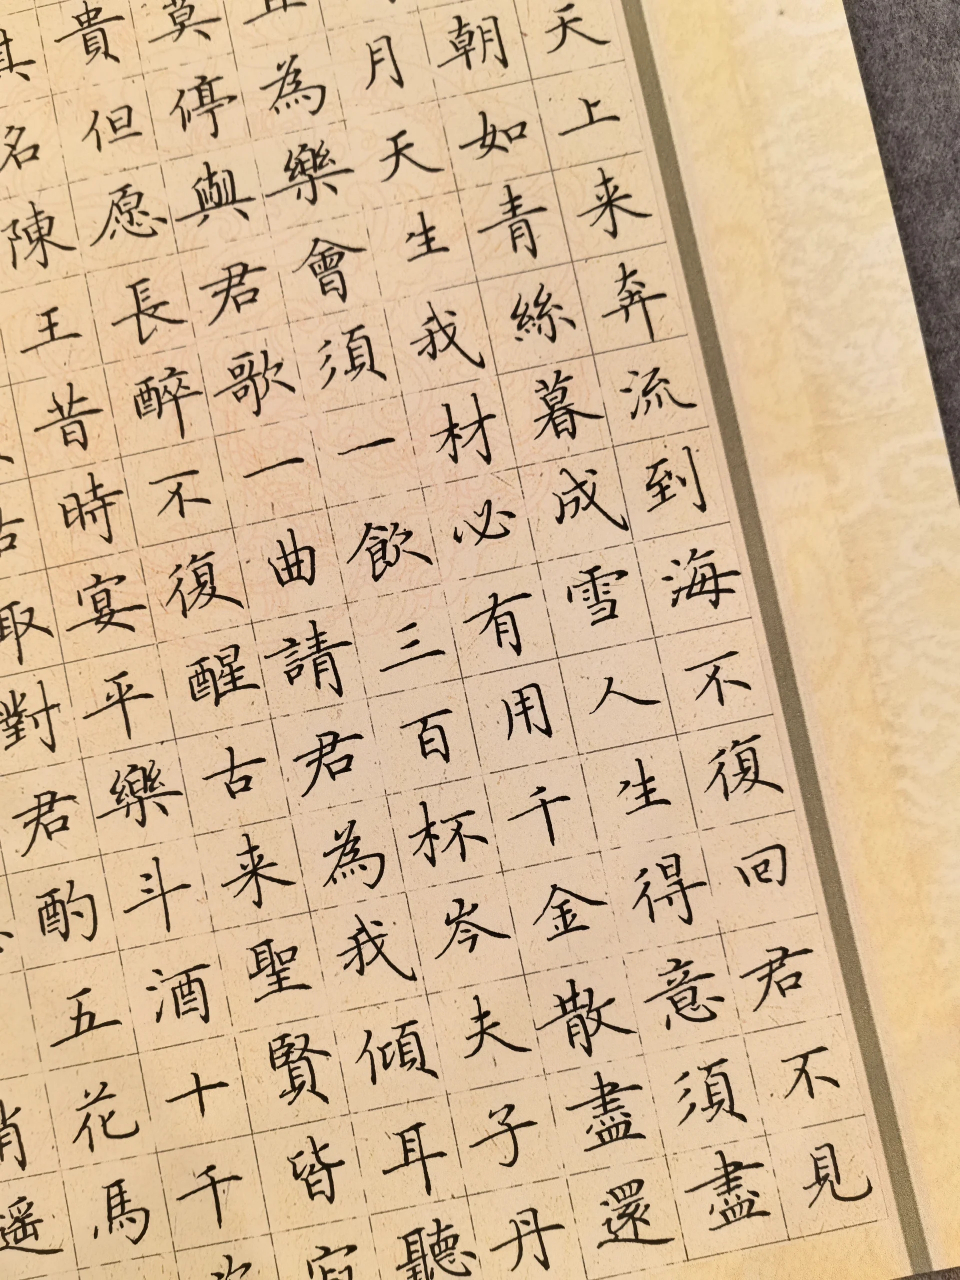 天上来奔流到海不復回君不見
朝如青絲暮成雪人生得意須盡
月天生我材必有用千金散盡還
為樂會須一飲三百杯岑夫子丹
莫停與君歌一曲請君為我傾耳聽
貴但愿長醉不復醒古来聖賢皆寂
其名陳王昔時宴平樂斗酒十千
取對君酌五花馬
遥